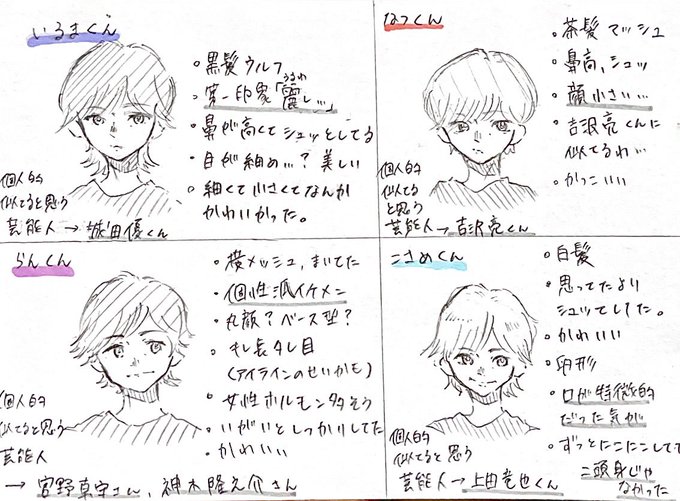 いるまくん
・黒髪ウルフ
・第一印象「麗しい…」
うるわ
・鼻が高くてシュッとしてる
・目が細め…？美しい
・細くて小さくてなんか
かわいかった。
個人的
似てると思う
芸能人→城田優くん
なつくん
・茶髪マッシュ
・鼻高、シュッ
・顔小さい…
・吉沢亮くんに
似てるわ…
・かっこいい
個人的
似てる
と思う
芸能人→吉沢亮くん
らんくん
・桜メッシュ、まいてた
・個性派イケメン
・丸顔？ベース型？
・キレ長タレ目
(アイラインのせいかも)
・女性ホルモン多そう
・いがいとしっかりしてた
・かわいい
個人的
似てると思う
芸能人
→宮野真守さん、神木隆之介さん
こさめくん
・白髪
・思ってたより
シュッてしてた。
・かわいい
・卵形
・口が特徴的
だった気が
・ずっとにこにこしてて
二頭身じゃ
なかった
個人的
似てると思う
芸能人→上田竜也くん